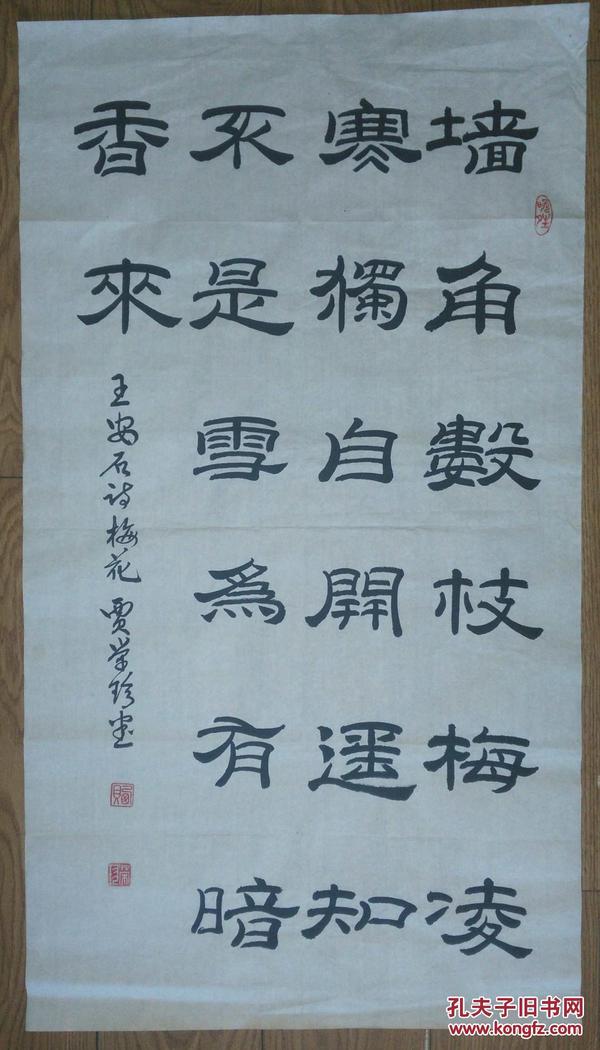 墙角數枝梅凌
寒獨自開遥知
不是雪爲有暗
香來
王安石詩梅花 賈荣珍書
孔夫子旧书网
www.kongfz.com